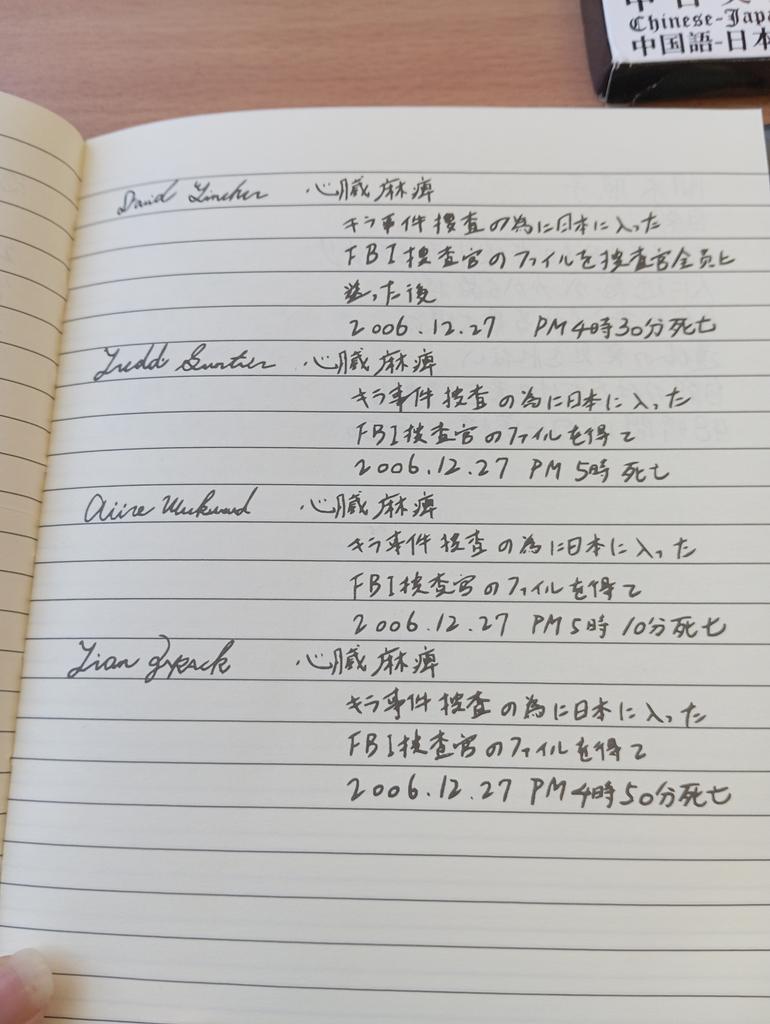 Chinese-Japa
中国語-日本
David 心臓麻痺
キラ事件捜査の為に日本に入った
FBI捜査官のファイルを捜査官全員に
送った後
2006.12.27 PM4時30分死亡
心臓麻痺
キラ事件捜査の為に日本に入った
FBI捜査官のファイルを得て
2006.12.27 PM5時死亡
心臓麻痺
キラ事件捜査の為に日本に入った
FBI捜査官のファイルを得て
2006.12.27 PM5時10分死亡
心臓麻痺
キラ事件捜査の為に日本に入った
FBI捜査官のファイルを得て
2006.12.27 PM4時50分死亡